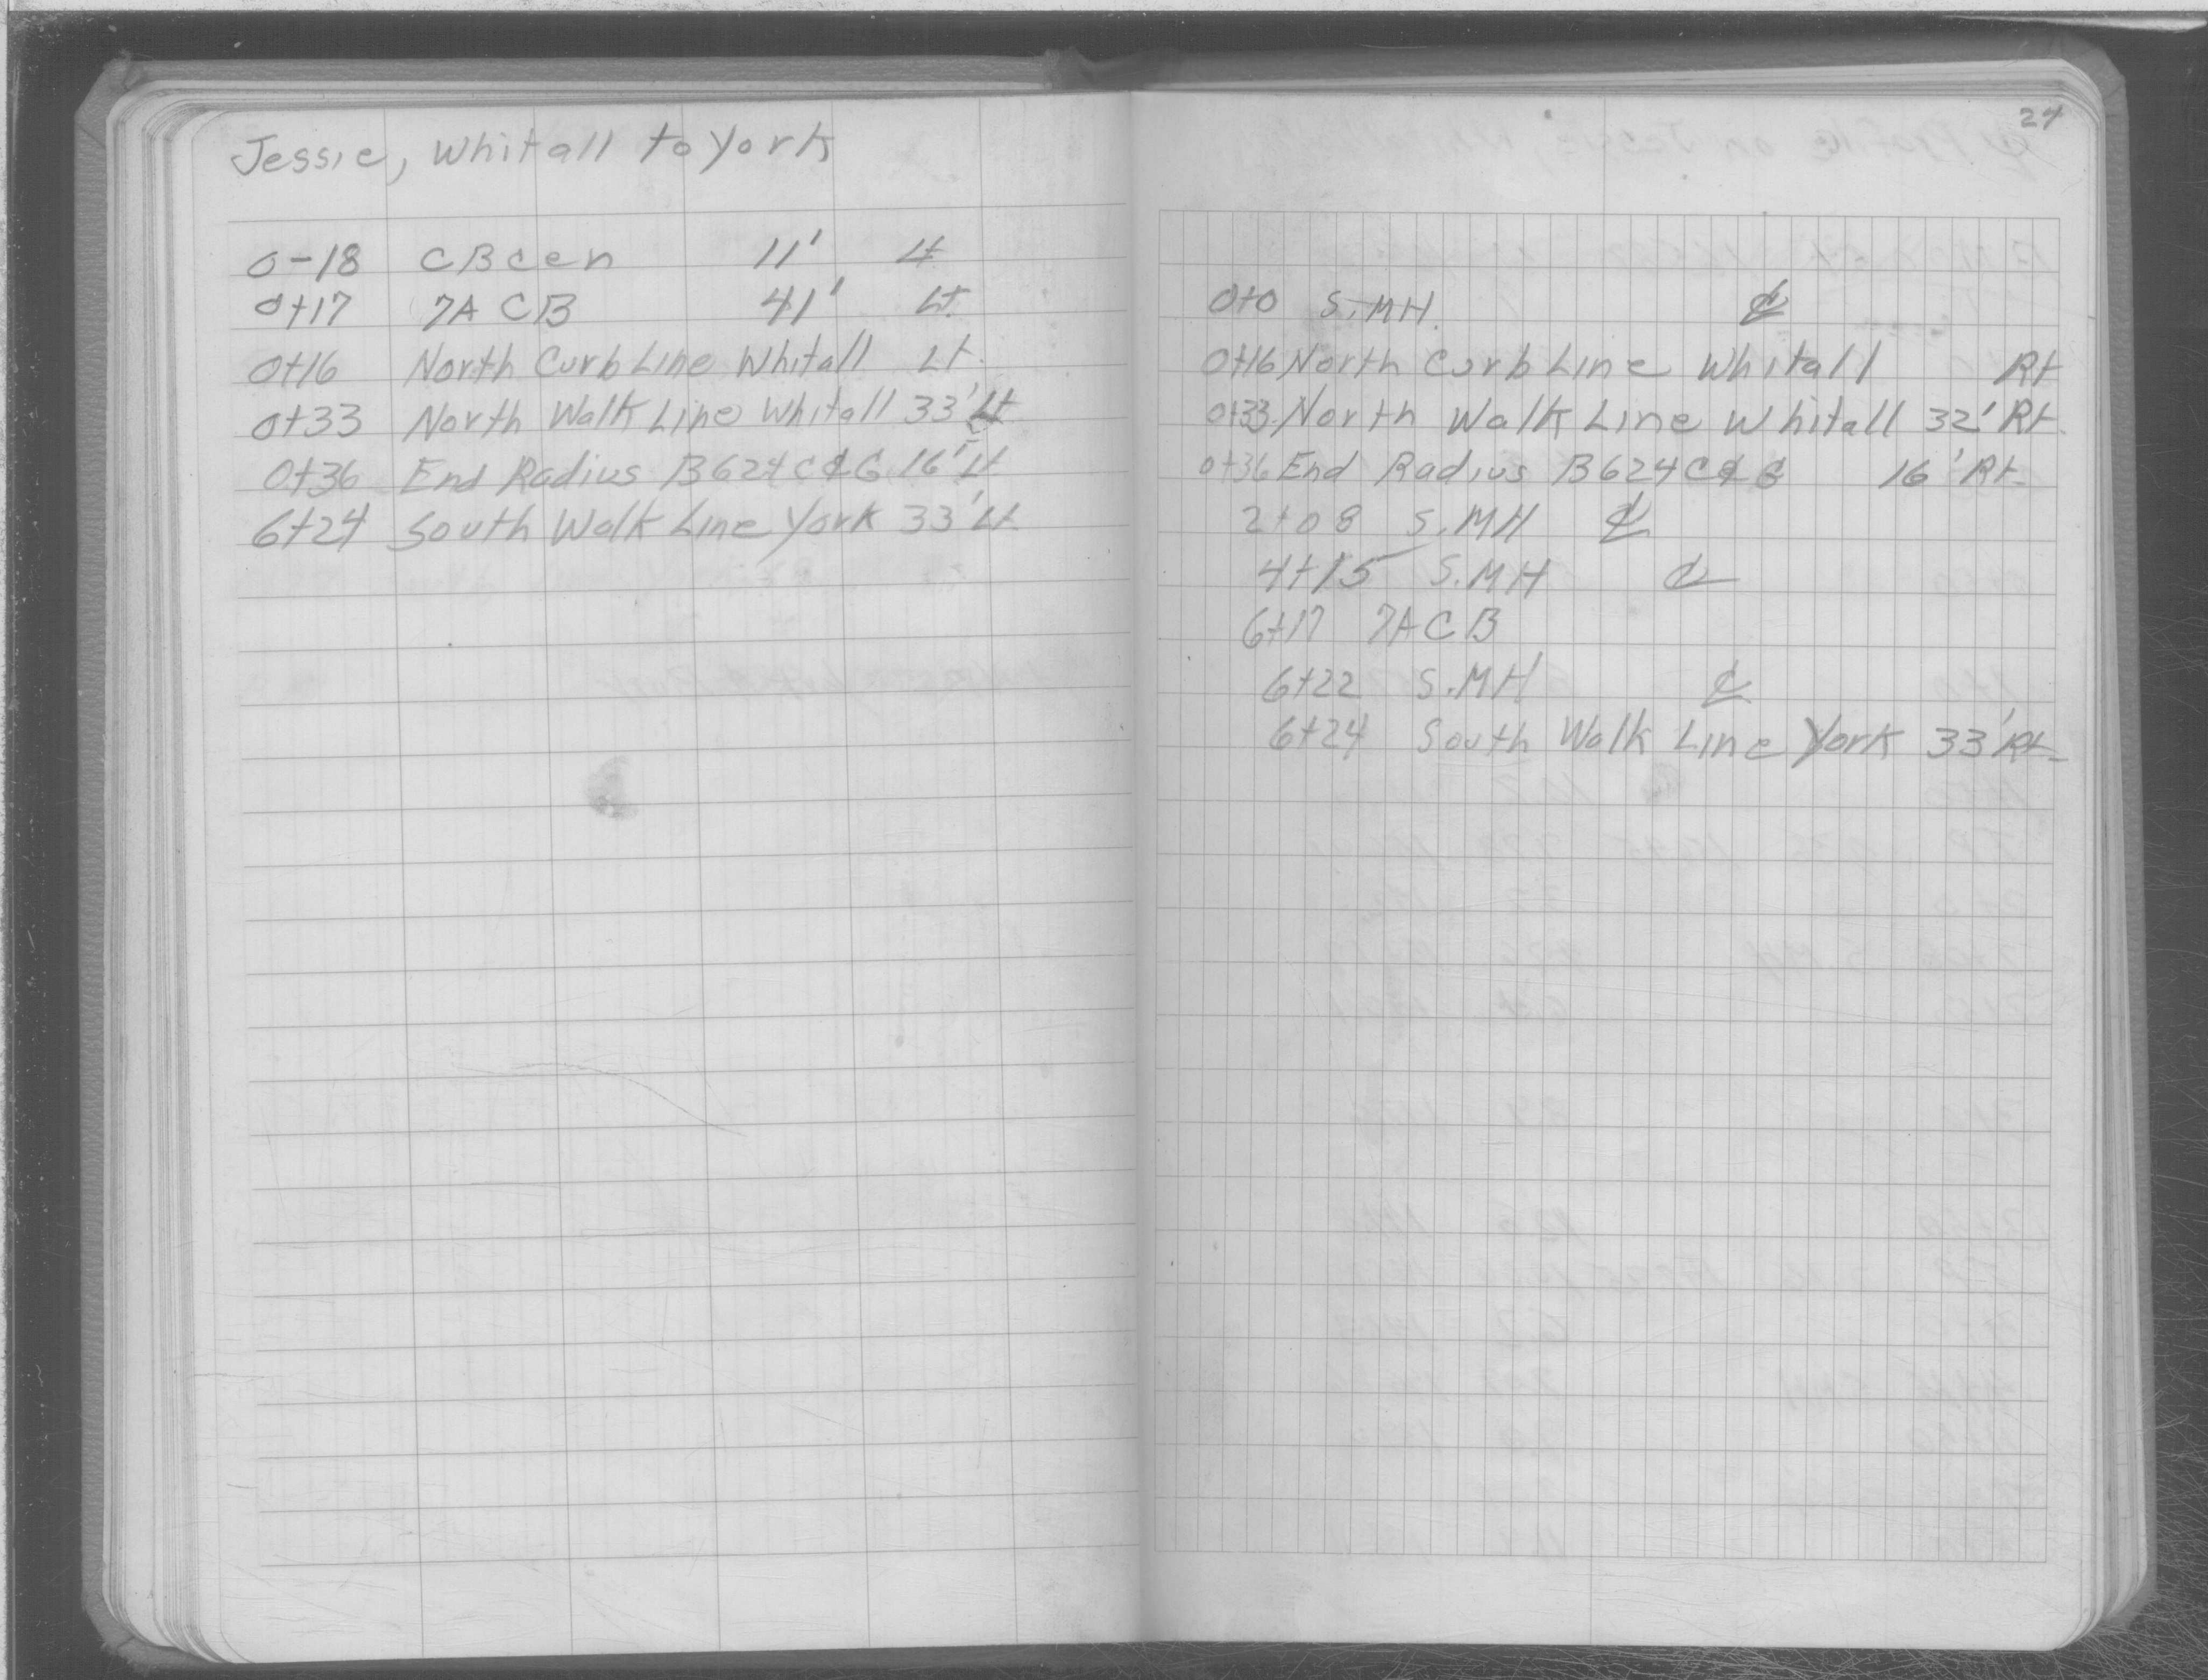 Jessie, Whitall to York
0-18 CB cen 11' Lt
0+17 7A CB 41' Lt.
0+16 North Curb Line Whitall Lt.
0+33 North Walk Line Whitall 33' Lt
0+36 End Radius B624 C&G 16' Lt
6+24 South Walk Line York 33' Lt
24
0+0 S.MH. ℄
0+16 North Curb Line Whitall Rt
0+33 North Walk Line Whitall 32' Rt.
0+36 End Radius B624 C&G 16' Rt.
2+08 S.MH ℄
4+15 S.MH ℄
6+17 7A CB
6+22 S.MH ℄
6+24 South Walk Line York 33' Rt.